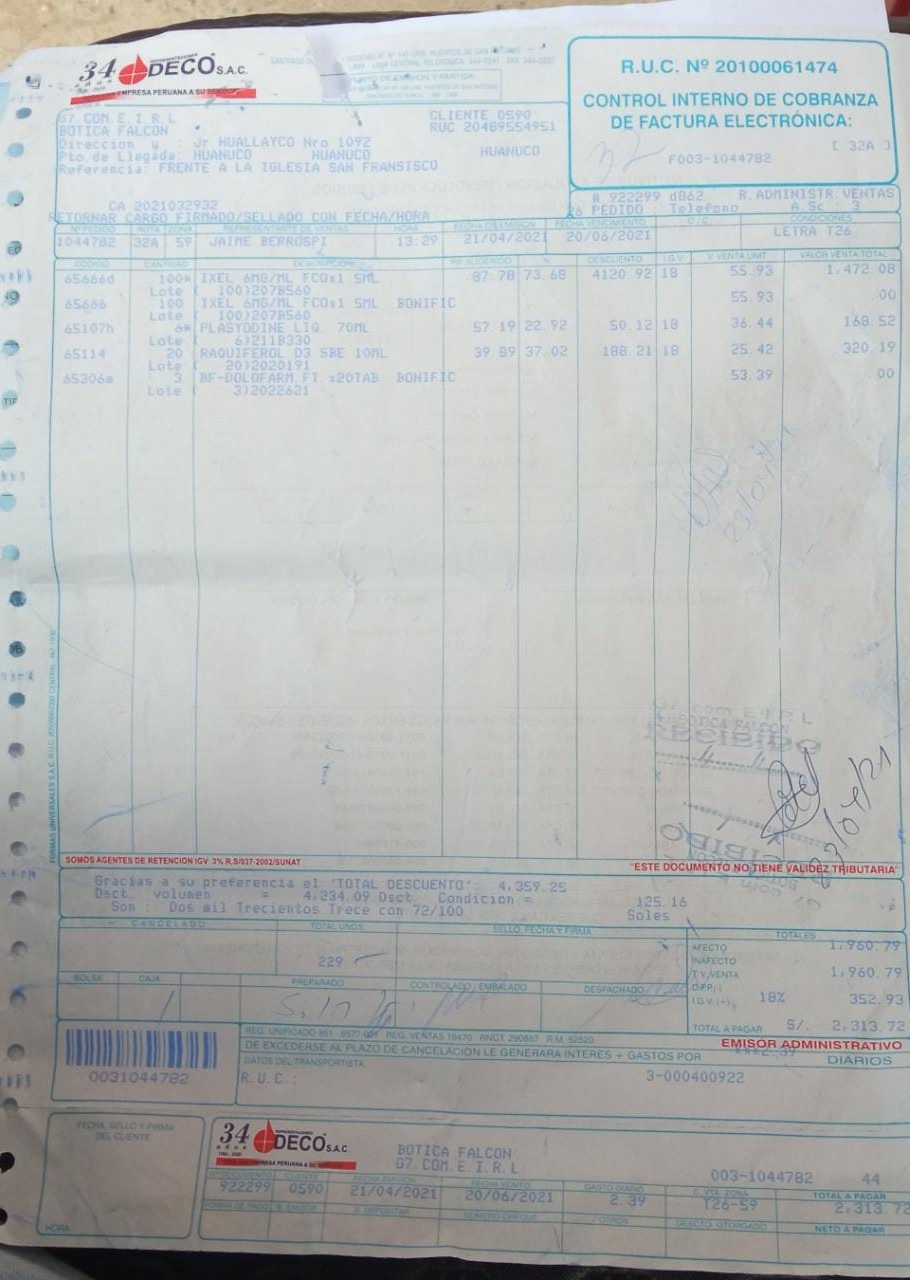 34 años
REPRESENTACIONES
DECO S.A.C.
EMPRESA PERUANA A SU SERVICIO
R.U.C. Nº 20100061474
CONTROL INTERNO DE COBRANZA
DE FACTURA ELECTRÓNICA:
[ 32A ]
F003-1044782
G7.COM.E.I.R.L CLIENTE 0590
BOTICA FALCON RUC 20489554951
Direccion y : Jr HUALLAYCO Nro 1092
Pto.de Llegada: HUANUCO HUANUCO HUANUCO
Referencia: FRENTE A LA IGLESIA SAN FRANSISCO
# 922299 d862 R.ADMINISTR.VENTAS
CA 2021032932 26 PEDIDO : Telefono A Gc : 3
RETORNAR CARGO FIRMADO/SELLADO CON FECHA/HORA
Nº PEDIDO RUTA ZONA REPRESENTANTE DE VENTAS HORA FECHA DE EMISION FECHA VENCIMIENTO O/C CONDICIONES
1044782 32A 59 JAIME BERROSPI 13:29 21/04/2021 20/06/2021 LETRA T26
CODIGO CANTIDAD DESCRIPCION P.P. SUGERIDO % DESCUENTO I.G.V. V.VENTA UNIT VALOR VENTA TOTAL
65666d 100* IXEL 6MG/ML FCOx1 5ML 87.78 73.68 4120.92 18 55.93 1,472.08
Lote ( 100)207B560
65666 100 IXEL 6MG/ML FCOx1 5ML BONIFIC 55.93 00
Lote ( 100)207B560
65107h 6* PLASYODINE LIQ. 70ML 57.19 22.92 50.12 18 36.44 168.52
Lote ( 6)211B330
65114 20 RAQUIFEROL D3 SBE 10ML 39.89 37.02 188.21 18 25.42 320.19
Lote ( 20)2020191
65306m 3 BF-DOLOFARM.FT.x20TAB BONIFIC 53.39 00
Lote ( 3)2022621
G7 com E I R L
BOTICA FALCON
RECIBIDO
23/04/21
SOMOS AGENTES DE RETENCION IGV. 3% R.S/037-2002/SUNAT
"ESTE DOCUMENTO NO TIENE VALIDEZ TRIBUTARIA"
Gracias a su preferencia el 'TOTAL DESCUENTO': 4,359.25
Dsct. volumen = 4,234.09 Dsct. Condicion = 125.16
Son : Dos mil Trecientos Trece con 72/100 Soles
CANCELADO TOTAL UNDS SELLO, FECHA Y FIRMA TOTALES
229
AFECTO 1,960.79
INAFECTO
T.V.VENTA 1,960.79
D.P.P(-)
I.G.V.(+) 18% 352.93
TOTAL A PAGAR S/. 2,313.72
BOLSA CAJA PREPARADO CONTROLADO / EMBALADO DESPACHADO
EMISOR ADMINISTRATIVO
DE EXCEDERSE AL PLAZO DE CANCELACION LE GENERARA INTERES + GASTOS POR ***2.39 DIARIOS
DATOS DEL TRANSPORTISTA
R.U.C.: 3-000400922
0031044782
FECHA, SELLO Y FIRMA
DEL CLIENTE
HORA
34 años
REPRESENTACIONES
DECO S.A.C
EMPRESA PERUANA A SU SERVICIO
BOTICA FALCON
G7.COM.E.I.R.L
003-1044782 44
CLIENTE FECHA EMISION FECHA VCMTO GASTO DIARIO C. VTA. ZONA TOTAL A PAGAR
922299 0590 21/04/2021 20/06/2021 2.39 T26-59 2,313.72
FORMA DE PAGO B. EMISOR B. DEPOSITAR NUMERO CHEQUE OTROS DESCTO. OTORGADO NETO A PAGAR